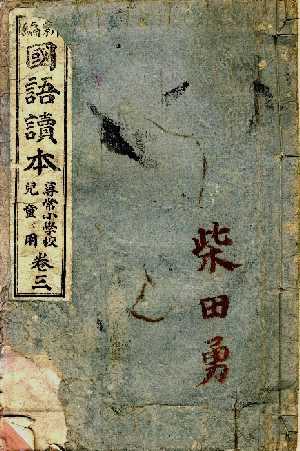 新編
國語讀本
尋常小學校
兒童用
卷三
柴田勇